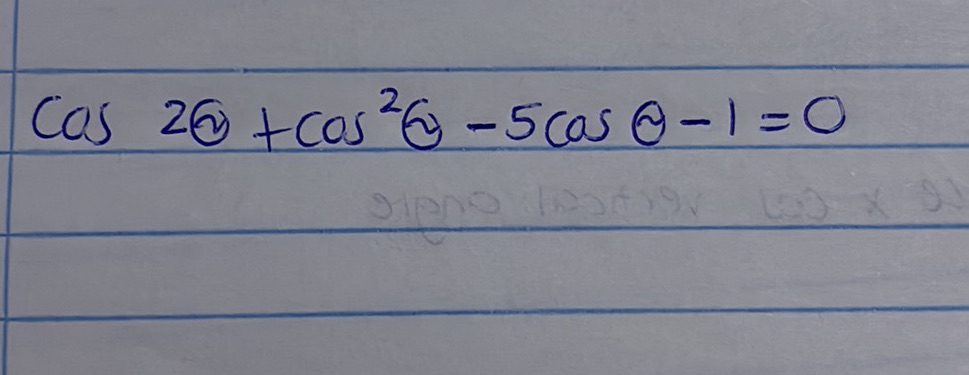 Cos 2θ + cos²θ - 5cos θ - 1 = 0